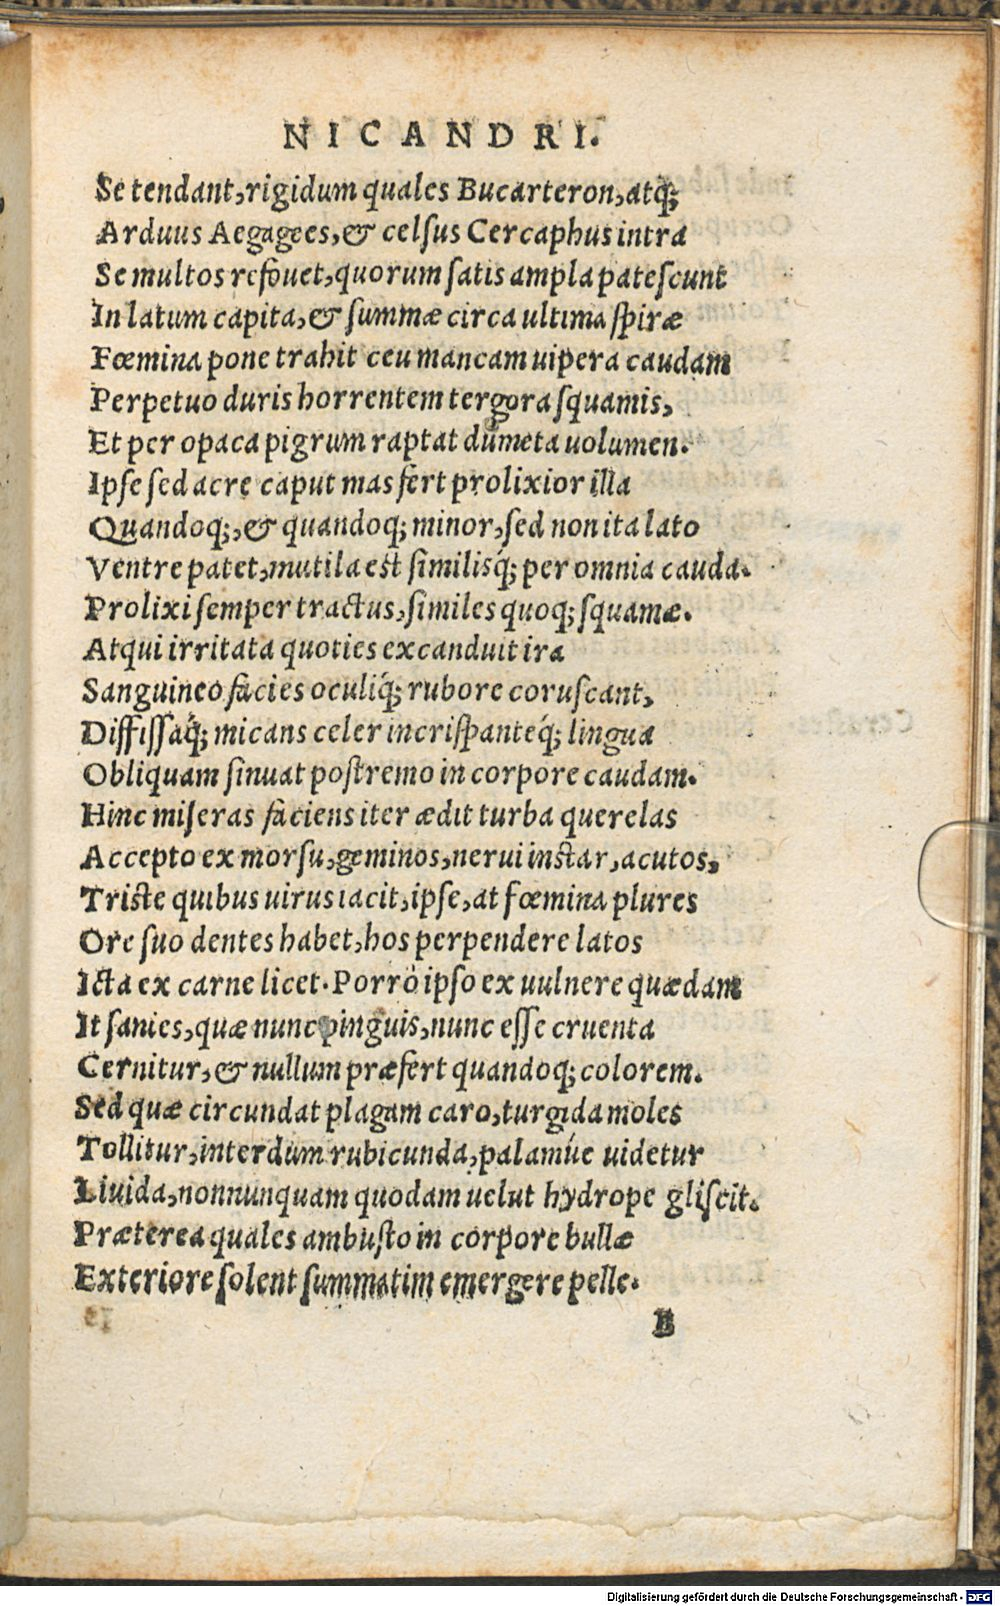 NICANDRI.
Se tendant, rigidum quales Bucarteron, atq;
Arduus Aegagees, & celsus Cercaphus intra
Se multos refouet, quorum satis ampla patescunt
In latum capita, & summæ circa ultima spiræ
Fœmina pone trahit ceu mancam uipera caudam
Perpetuo duris horrentem tergora squamis,
Et per opaca pigrum raptat dumeta uolumen.
Ipse sed acre caput mas fert prolixior illa
Quandoq;, & quandoq; minor, sed non ita lato
Ventre patet, mutila est similisq́; per omnia cauda.
Prolixi semper tractus, similes quoq; squamæ.
Atqui irritata quoties excanduit ira
Sanguineo facies oculiq́; rubore coruscant,
Diffissáq́; micans celer incrispanteq́; lingua
Obliquam sinuat postremo in corpore caudam.
Hinc miseras faciens iter ædit turba querelas
Accepto ex morsu, geminos, nerui instar, acutos,
Triste quibus uirus iacit, ipse, at fœmina plures
Ore suo dentes habet, hos perpendere latos
Icta ex carne licet. Porrò ipso ex uulnere quædam
It sanies, quæ nunc pinguis, nunc esse cruenta
Cernitur, & nullum præfert quandoq; colorem.
Sed quæ circundat plagam caro, turgida moles
Tollitur, interdum rubicunda, palamúe uidetur
Liuida, nonnunquam quodam uelut hydrope gliscit.
Præterea quales ambusto in corpore bullæ
Exteriore solent summatim emergere pelle.
B
Digitalisierung gefördert durch die Deutsche Forschungsgemeinschaft - DFG